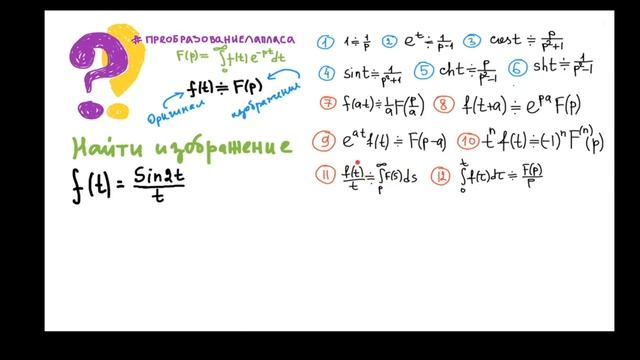 #преобразованиелапласа
F(p)= ∫₀^∞ f(t) e^(-pt) dt
f(t) ≑ F(p)
Оригинал изображение
Найти изображение
f(t) = Sin2t/t
① 1 ≑ 1/p ② e^t ≑ 1/(p-1) ③ cost ≑ p/(p²+1)
④ sint ≑ 1/(p²+1) ⑤ cht ≑ p/(p²-1) ⑥ sht ≑ 1/(p²-1)
⑦ f(at) ≑ 1/a F(p/a) ⑧ f(t+a) ≑ e^(pa) F(p)
⑨ e^(at) f(t) ≑ F(p-a) ⑩ t^n f(t) ≑ (-1)^n F^(n)(p)
⑪ f(t)/t ≑ ∫_p^∞ F(s)ds ⑫ ∫₀^t f(τ)dτ ≑ F(p)/p